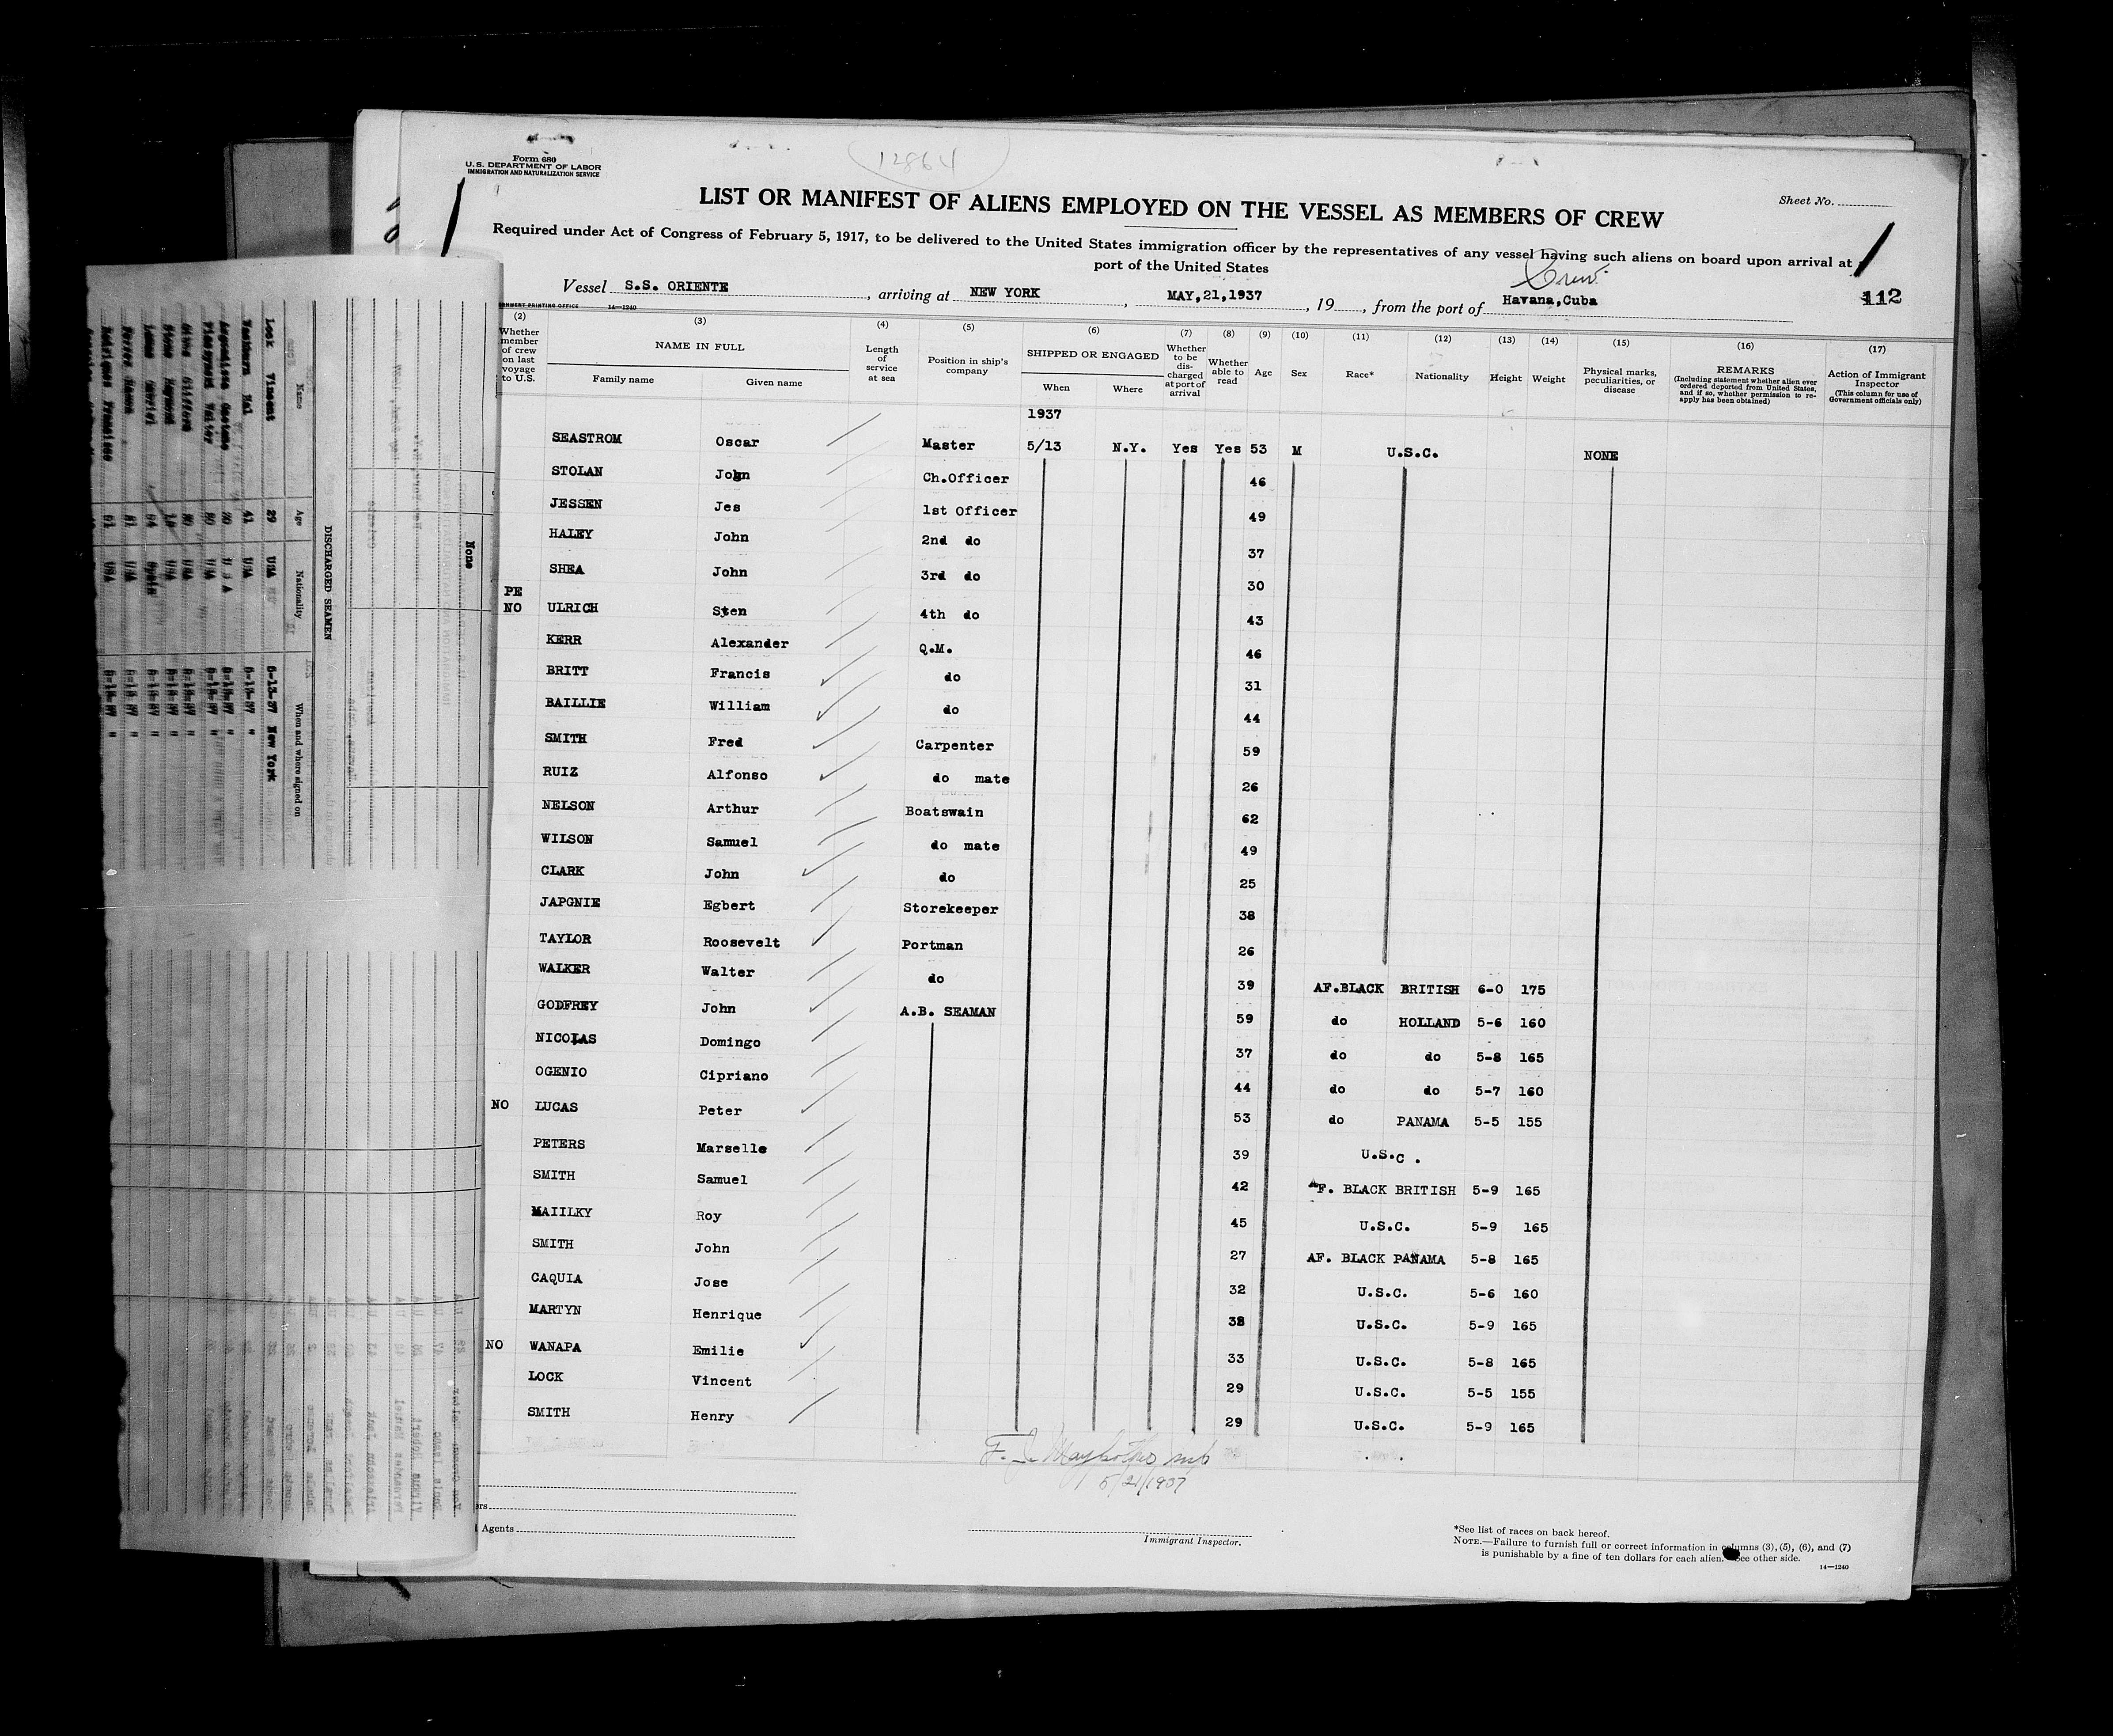 12864
Form 680
U.S. DEPARTMENT OF LABOR
IMMIGRATION AND NATURALIZATION SERVICE
LIST OR MANIFEST OF ALIENS EMPLOYED ON THE VESSEL AS MEMBERS OF CREW
Sheet No.
Required under Act of Congress of February 5, 1917, to be delivered to the United States immigration officer by the representatives of any vessel having such aliens on board upon arrival at
port of the United States
Crew
Vessel S.S. ORIENTE, arriving at NEW YORK, MAY,21,1937, 19, from the port of Havana,Cuba
112
14—1240
(2) (3) (4) (5) (6) (7) (8) (9) (10) (11) (12) (13) (14) (15) (16) (17)
Whether member of crew on last voyage to U.S.
NAME IN FULL
Family name Given name
Length of service at sea
Position in ship's company
SHIPPED OR ENGAGED
When Where
Whether to be discharged at port of arrival
Whether able to read
Age
Sex
Race*
Nationality
Height
Weight
Physical marks, peculiarities, or disease
REMARKS
(Including statement whether alien ever ordered deported from United States, and if so, whether permission to reapply has been obtained)
Action of Immigrant Inspector
(This column for use of Government officials only)
1937
SEASTROM Oscar Master 5/13 N.Y. Yes Yes 53 M U.S.C. NONE
STOLAN John Ch.Officer 46
JESSEN Jes 1st Officer 49
HALEY John 2nd do 37
SHEA John 3rd do 30
PE
NO ULRICH Sten 4th do 43
KERR Alexander Q.M. 46
BRITT Francis do 31
BAILLIE William do 44
SMITH Fred Carpenter 59
RUIZ Alfonso do mate 26
NELSON Arthur Boatswain 62
WILSON Samuel do mate 49
CLARK John do 25
JAPGNIE Egbert Storekeeper 38
TAYLOR Roosevelt Portman 26
WALKER Walter do 39 AF.BLACK BRITISH 6-0 175
GODFREY John A.B. SEAMAN 59 do HOLLAND 5-6 160
NICOLAS Domingo 37 do do 5-8 165
OGENIO Cipriano 44 do do 5-7 160
NO LUCAS Peter 53 do PANAMA 5-5 155
PETERS Marselle 39 U.S.C.
SMITH Samuel 42 AF. BLACK BRITISH 5-9 165
MAIILKY Roy 45 U.S.C. 5-9 165
SMITH John 27 AF. BLACK PANAMA 5-8 165
CAQUIA Jose 32 U.S.C. 5-6 160
MARTYN Henrique 38 U.S.C. 5-9 165
NO WANAPA Emilie 33 U.S.C. 5-8 165
LOCK Vincent 29 U.S.C. 5-5 155
SMITH Henry 29 U.S.C. 5-9 165
5/21/1937
Agents
Immigrant Inspector.
*See list of races on back hereof.
NOTE.—Failure to furnish full or correct information in columns (3), (5), (6), and (7)
is punishable by a fine of ten dollars for each alien. See other side.
14—1240
None
DISCHARGED SEAMEN
Name Age Nationality When and where signed on
Lock Vincent 29 USA 5-13-37 New York